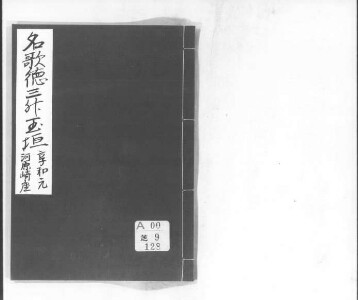 名歌徳三舛玉垣
享和元
河原崎座
A 00
9
128